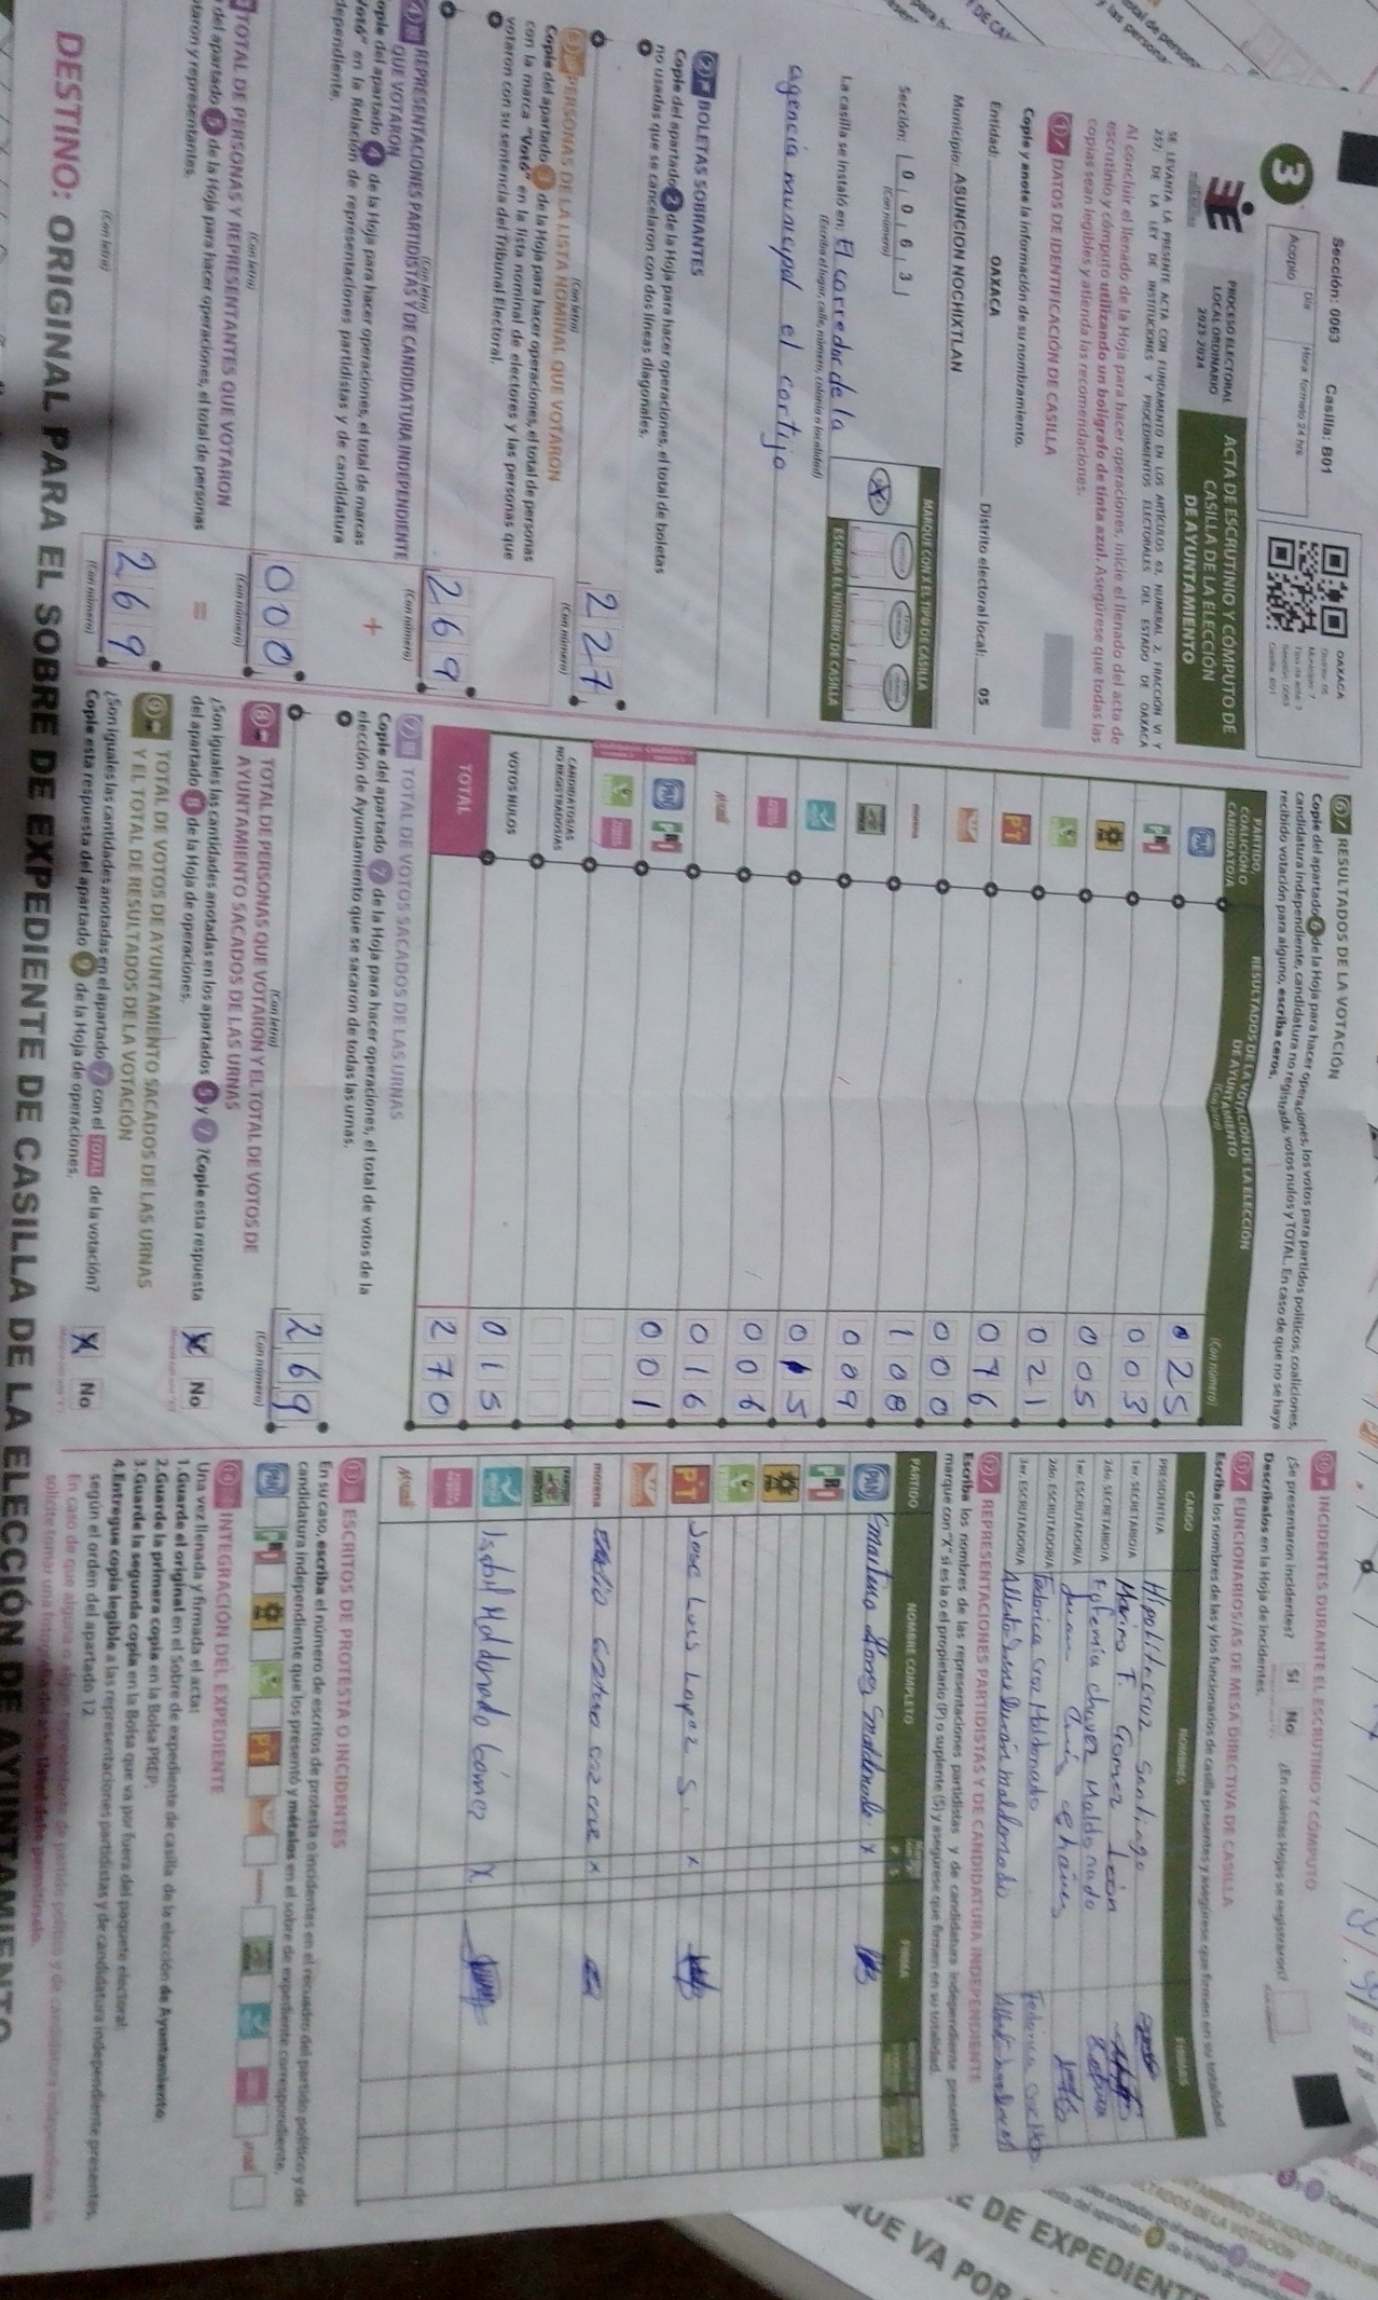 Sección: 0063 Casilla: B01
Acopio
Día
Hora formato 24 hrs
OAXACA
3
PROCESO ELECTORAL
LOCAL ORDINARIO
2023 2024
ACTA DE ESCRUTINIO Y CÓMPUTO DE
CASILLA DE LA ELECCIÓN
DE AYUNTAMIENTO
SE LEVANTA LA PRESENTE ACTA CON FUNDAMENTO EN LOS ARTÍCULOS 61, NUMERAL 2, FRACCIÓN VI Y
257, DE LA LEY DE INSTITUCIONES Y PROCEDIMIENTOS ELECTORALES DEL ESTADO DE OAXACA
Al concluir el llenado de la Hoja para hacer operaciones, inicie el llenado del acta de
escrutinio y cómputo utilizando un bolígrafo de tinta azul. Asegúrese que todas las
copias sean legibles y atienda las recomendaciones.
1 DATOS DE IDENTIFICACIÓN DE CASILLA
Copie y anote la información de su nombramiento.
Entidad: OAXACA Distrito electoral local: 05
Municipio: ASUNCION NOCHIXTLAN
Sección: 0 0 6 3
(Con número)
MARQUE CON X EL TIPO DE CASILLA
X
ESCRIBA EL NÚMERO DE CASILLA
La casilla se instaló en: El corredor de la
(Escriba el lugar, calle, número, colonia o localidad)
agencia municipal el cortijo
2 BOLETAS SOBRANTES
Copie del apartado 2 de la Hoja para hacer operaciones, el total de boletas
no usadas que se cancelaron con dos líneas diagonales.
(Con letra)
227
(Con número)
3 PERSONAS DE LA LISTA NOMINAL QUE VOTARON
Copie del apartado 3 de la Hoja para hacer operaciones, el total de personas
con la marca "Votó" en la lista nominal de electores y las personas que
votaron con su sentencia del Tribunal Electoral.
(Con letra)
269
(Con número)
4 REPRESENTACIONES PARTIDISTAS Y DE CANDIDATURA INDEPENDIENTE
QUE VOTARON
Copie del apartado 4 de la Hoja para hacer operaciones, el total de marcas
"Votó" en la Relación de representaciones partidistas y de candidatura
independiente.
+
(Con letra)
000
(Con número)
TOTAL DE PERSONAS Y REPRESENTANTES QUE VOTARON
del apartado 5 de la Hoja para hacer operaciones, el total de personas
votaron y representantes.
=
(Con letra)
269
(Con número)
6 RESULTADOS DE LA VOTACIÓN
Copie del apartado 6 de la Hoja para hacer operaciones, los votos para partidos políticos, coaliciones,
candidatura independiente, candidatura no registrada, votos nulos y TOTAL. En caso de que no se haya
recibido votación para alguno, escriba ceros.
PARTIDO,
COALICIÓN O
CANDIDATO/A
RESULTADOS DE LA VOTACIÓN DE LA ELECCIÓN
DE AYUNTAMIENTO
(Con letra)
(Con número)
PAN 025
PRI 003
005
PT 021
076
000
morena 108
009
015
006
Mujer 016
PAN PRI 001
CANDIDATOS/AS
NO REGISTRADOS/AS
VOTOS NULOS 015
TOTAL 270
7 TOTAL DE VOTOS SACADOS DE LAS URNAS
Copie del apartado 7 de la Hoja para hacer operaciones, el total de votos de la
elección de Ayuntamiento que se sacaron de todas las urnas.
(Con letra)
269
(Con número)
8 TOTAL DE PERSONAS QUE VOTARON Y EL TOTAL DE VOTOS DE
AYUNTAMIENTO SACADOS DE LAS URNAS
¿Son iguales las cantidades anotadas en los apartados 5 y 7 ? Copie esta respuesta
del apartado 8 de la Hoja de operaciones.
X No
9 TOTAL DE VOTOS DE AYUNTAMIENTO SACADOS DE LAS URNAS
Y EL TOTAL DE RESULTADOS DE LA VOTACIÓN
¿Son iguales las cantidades anotadas en el apartado 7 con el TOTAL de la votación?
Copie esta respuesta del apartado 9 de la Hoja de operaciones.
X No
10 INCIDENTES DURANTE EL ESCRUTINIO Y CÓMPUTO
¿Se presentaron incidentes? Sí No ¿En cuántas Hojas se registraron?
Descríbalos en la Hoja de incidentes.
11 FUNCIONARIOS/AS DE MESA DIRECTIVA DE CASILLA
Escriba los nombres de las y los funcionarios de casilla presentes y asegúrese que firmen en su totalidad.
CARGO NOMBRES FIRMAS
PRESIDENTE/A Hipolito cruz Santiago
1er. SECRETARIO/A Marino F. Gomez León
2do. SECRETARIO/A Eufemia chavez Maldonado
1er. ESCRUTADOR/A Juan
2do. ESCRUTADOR/A Federica Cruz Maldonado
3er. ESCRUTADOR/A Alberto maldonado
12 REPRESENTACIONES PARTIDISTAS Y DE CANDIDATURA INDEPENDIENTE
Escriba los nombres de las representaciones partidistas y de candidatura independiente presentes,
marque con "X" si es la o el propietario (P) o suplente (S) y asegúrese que firmen en su totalidad.
PARTIDO NOMBRE COMPLETO P S FIRMA
PAN x
PRI
PT Jose Luis Lopez S. x
morena castro x
Isabil Maldonado Gómez X
Mujer
13 ESCRITOS DE PROTESTA O INCIDENTES
En su caso, escriba el número de escritos de protesta o incidentes en el recuadro del partido político y de
candidatura independiente que los presentó y métalos en el sobre de expediente correspondiente.
14 INTEGRACIÓN DEL EXPEDIENTE
Una vez llenada y firmada el acta:
1.Guarde el original en el Sobre de expediente de casilla de la elección de Ayuntamiento;
2.Guarde la primera copia en la Bolsa PREP;
3.Guarde la segunda copia en la Bolsa que va por fuera del paquete electoral;
4.Entregue copia legible a las representaciones partidistas y de candidatura independiente presentes,
según el orden del apartado 12.
DESTINO: ORIGINAL PARA EL SOBRE DE EXPEDIENTE DE CASILLA DE LA ELECCIÓN DE AYUNTAMIENTO
DE EXPEDIENT
QUE VA POR